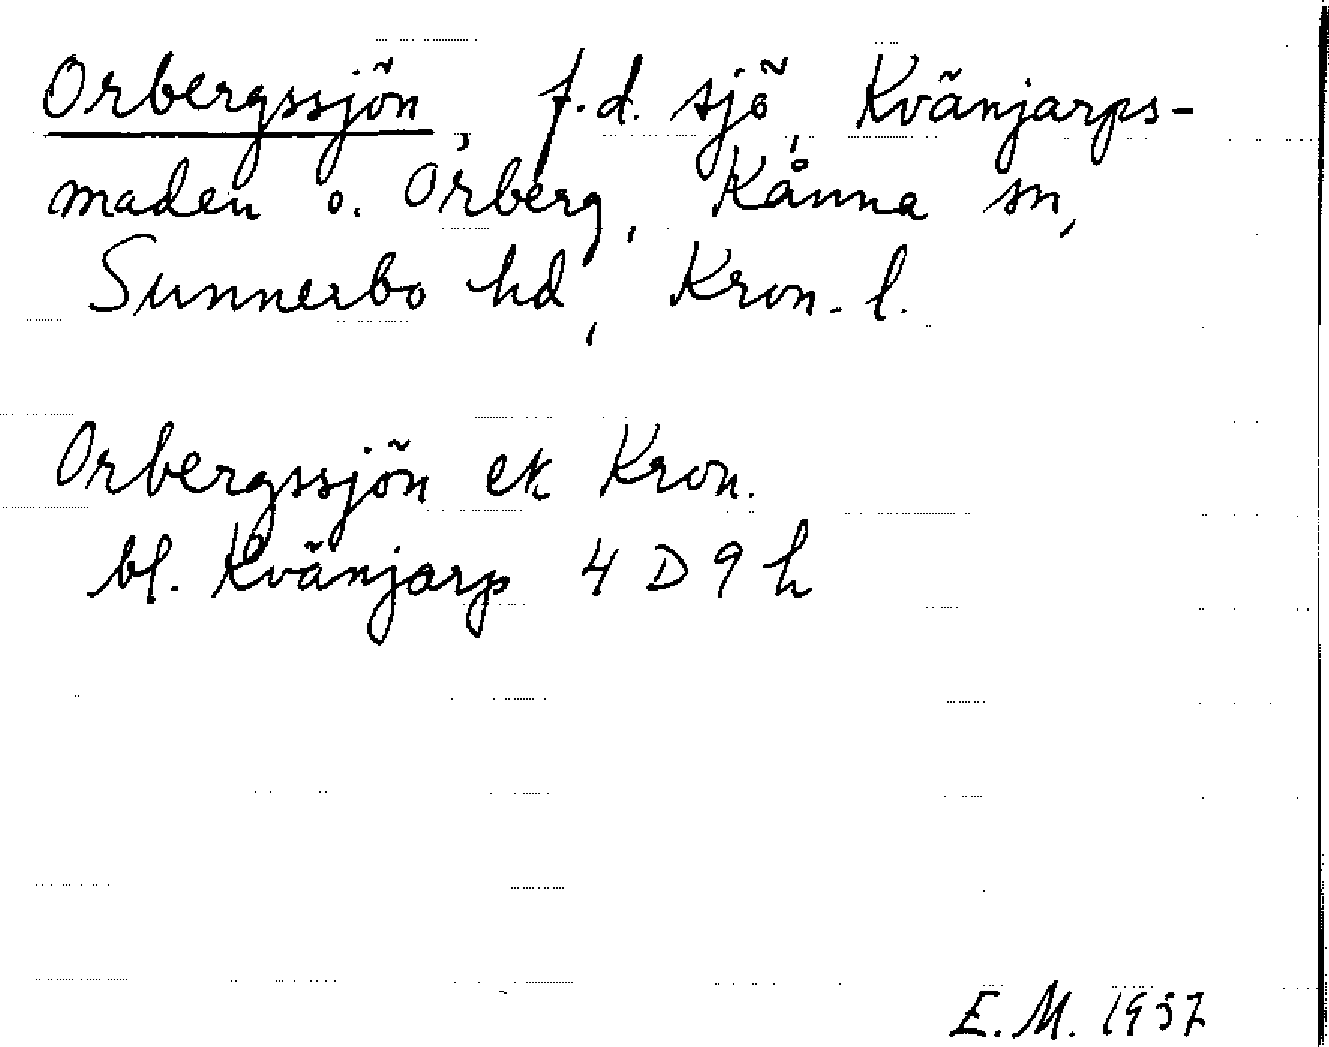 Orbergssjön, f.d. sjö, Kvänjarps-
maden o. Orberg, Kånna sn,
Sunnerbo hd, Kron. l.
Orbergssjön ek Kron.
bl. Kvänjarp 4 D 9 h
E. M. 1957